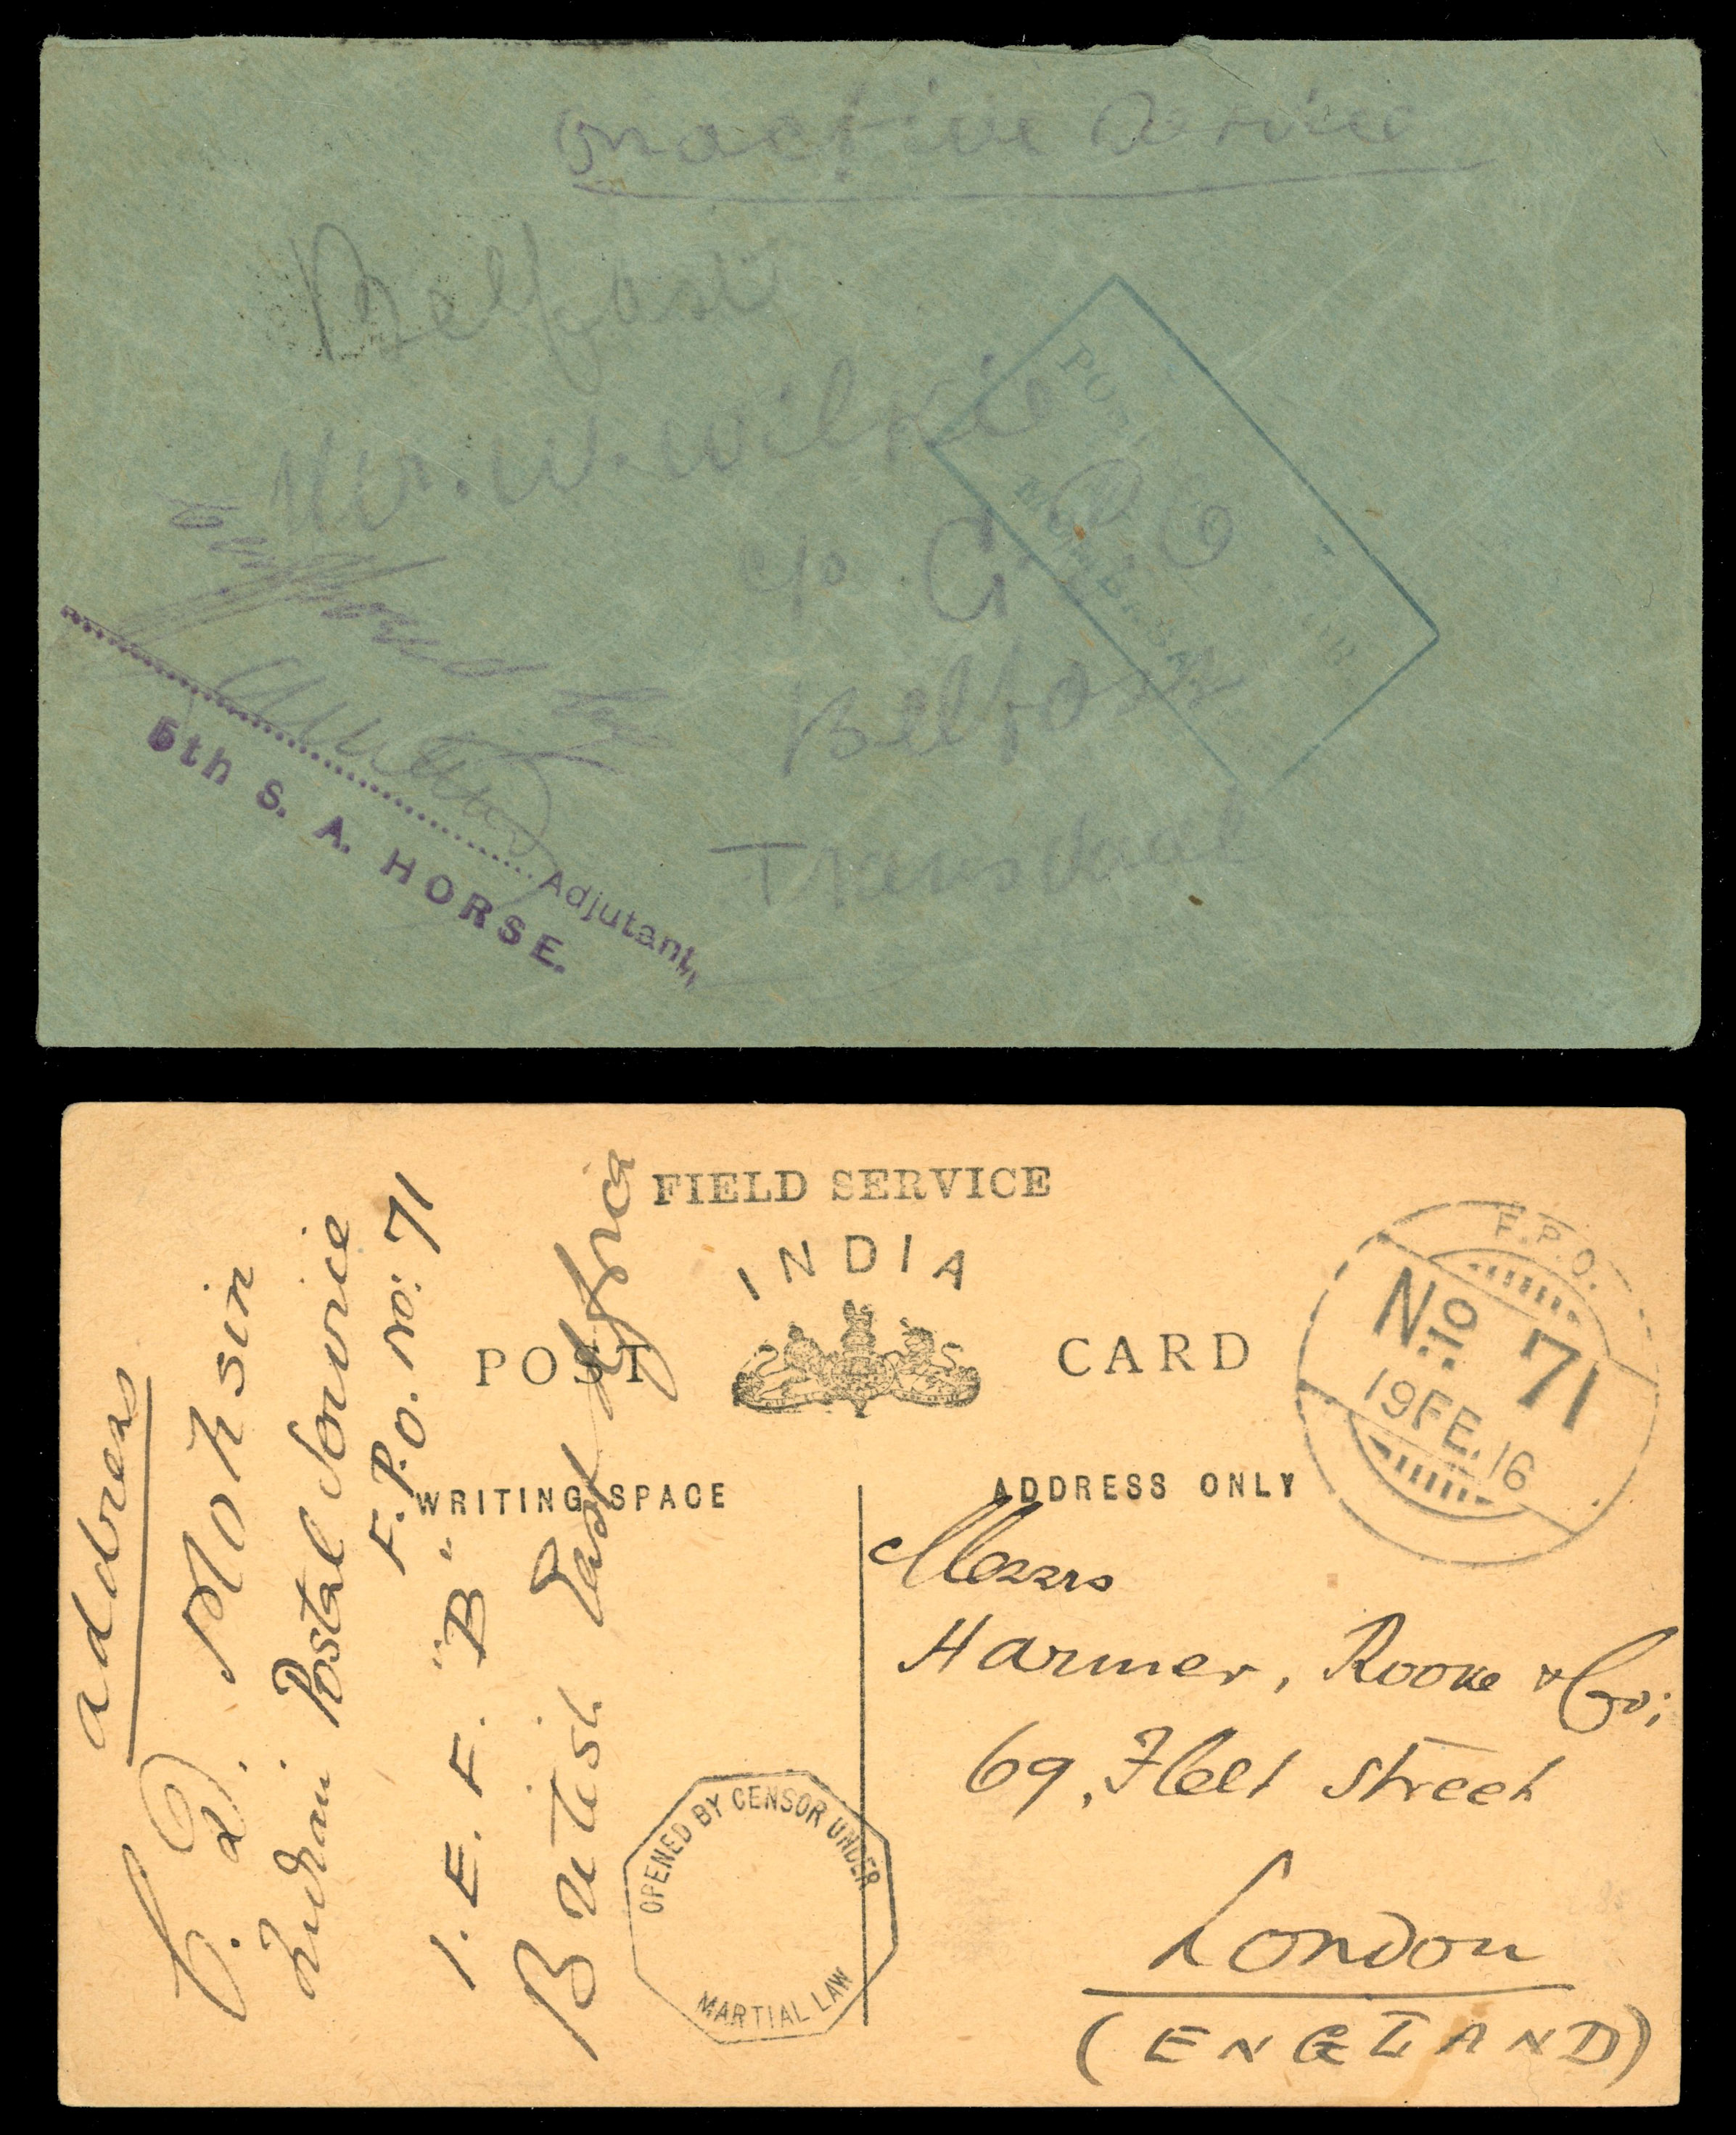 on active service
Belfast
Mr. W. Wilkie
c/o G. P. O
Belfast
Transvaal
Adjutant,
5th S. A. HORSE.
FIELD SERVICE
INDIA
POST CARD
WRITING SPACE
ADDRESS ONLY
F.P.O.
No. 71
19 FE. 16
address
C. D. Mohsin
Indian Postal Service
F.P.O. No: 71
I. E. F. "B"
British East Africa
OPENED BY CENSOR UNDER
MARTIAL LAW
Messrs
Harmer, Rooke & Co;
69, Fleet Street
London
(ENGLAND)